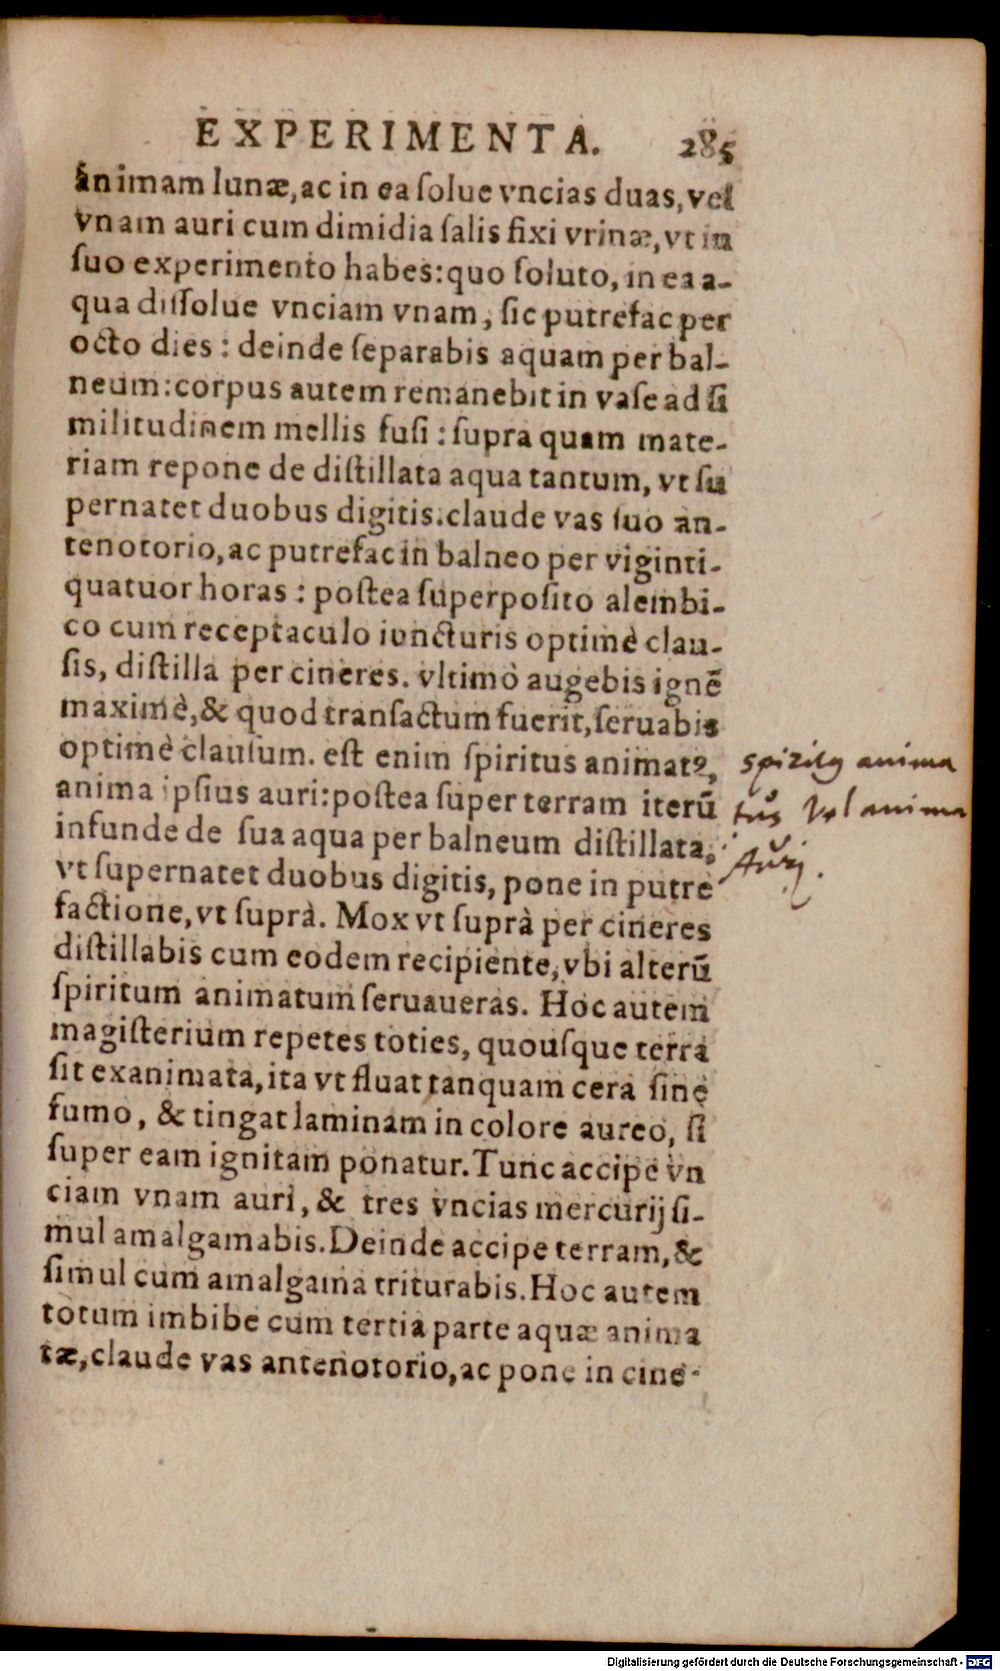 EXPERIMENTA. 285
animam lunæ, ac in ea ſolue vncias duas, vel
vnam auri cum dimidia ſalis fixi vrinæ, vt in
ſuo experimento habes: quo ſoluto, in ea a-
qua diſſolue vnciam vnam, ſic putrefac per
octo dies: deinde ſeparabis aquam per bal-
neum: corpus autem remanebit in vaſe ad ſi
militudinem mellis fuſi: ſupra quam mate-
riam repone de diſtillata aqua tantum, vt ſu
pernatet duobus digitis. claude vas ſuo an-
tenotorio, ac putrefac in balneo per viginti-
quatuor horas: poſtea ſuperpoſito alembi-
co cum receptaculo iuncturis optimè clau-
ſis, diſtilla per cineres. vltimò augebis ignē
maximè, & quod tranſactum fuerit, ſeruabis
optimè clauſum. eſt enim ſpiritus animatꝰ,
anima ipſius auri: poſtea ſuper terram iterū
infunde de ſua aqua per balneum diſtillata,
vt ſupernatet duobus digitis, pone in putre
factione, vt ſuprà. Mox vt ſuprà per cineres
diſtillabis cum eodem recipiente, vbi alterū
ſpiritum animatum ſeruaueras. Hoc autem
magiſterium repetes toties, quouſque terra
ſit exanimata, ita vt fluat tanquam cera ſine
fumo, & tingat laminam in colore aureo, ſi
ſuper eam ignitam ponatur. Tunc accipe vn
ciam vnam auri, & tres vncias mercurij ſi-
mul amalgamabis. Deinde accipe terram, &
ſimul cum amalgama triturabis. Hoc autem
totum imbibe cum tertia parte aquæ anima
tæ, claude vas antenotorio, ac pone in cine-
spiritꝰ anima
tus vel anima
Auri.
Digitalisierung gefördert durch die Deutsche Forschungsgemeinschaft - DFG